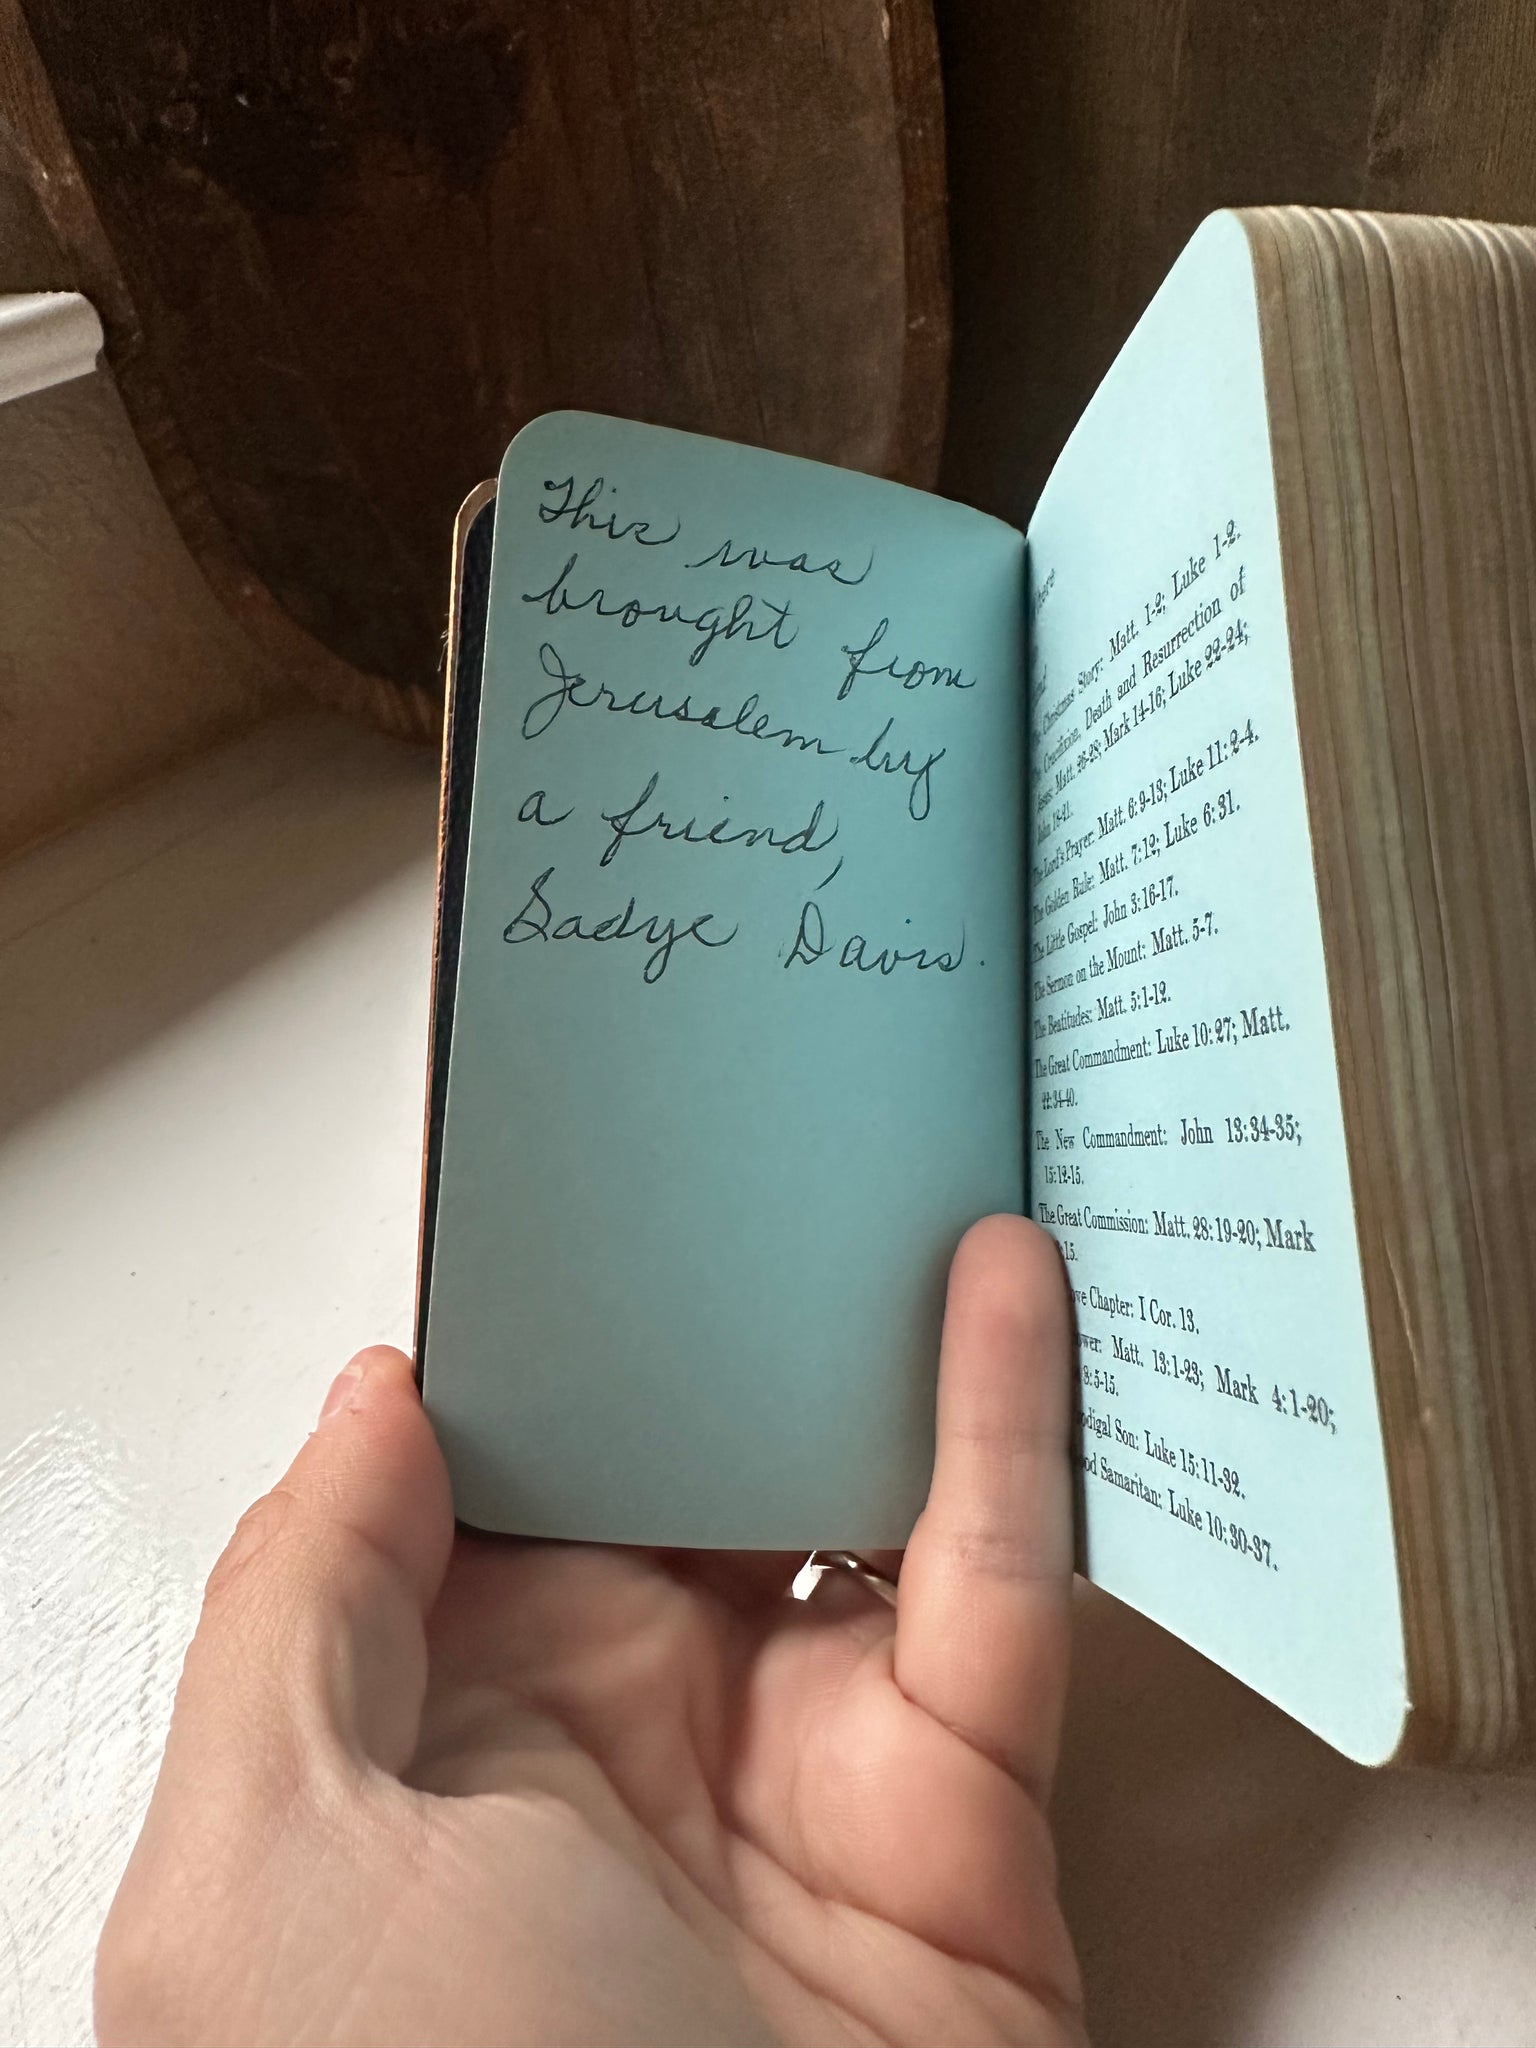 This was
brought from
Jerusalem by
a friend,
Sadye Davis.
Christmas Story: Matt. 1-2; Luke 1-2.
Crucifixion, Death and Resurrection of
Jesus: Matt. 26-28; Mark 14-16; Luke 22-24;
John 18-21.
The Lord's Prayer: Matt. 6:9-13; Luke 11:2-4.
The Golden Rule: Matt. 7:12; Luke 6:31.
The Little Gospel: John 3:16-17.
The Sermon on the Mount: Matt. 5-7.
The Beatitudes: Matt. 5:1-12.
The Great Commandment: Luke 10:27; Matt.
22:34-40.
The New Commandment: John 13:34-35;
15:12-15.
The Great Commission: Matt. 28:19-20; Mark
:15.
ove Chapter: I Cor. 13.
ower: Matt. 13:1-23; Mark 4:1-20;
8:5-15.
odigal Son: Luke 15:11-32.
ood Samaritan: Luke 10:30-37.